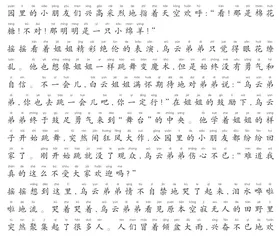 园里的小朋友们兴高采烈地指着天空欢呼:“看!那是棉花
糖!不对!那明明是一只小绵羊!”
摇摇看着姐姐精彩绝伦的表演,乌云弟弟只觉得眼花缭
乱。他也想像姐姐一样跳舞变魔术,但是始终没有勇气和
自信。不一会儿,白云姐姐满怀期待地对弟弟说:“乌云弟
弟,你也去跳一会儿吧,你一定行!”在姐姐的鼓励下,乌云弟
弟终于鼓足勇气来到“舞台”的中央。他学着姐姐的样
子开始跳舞,突然间狂风大作,公园里的小朋友都纷纷回
家了。刚开始跳就没了观众,乌云弟弟伤心不已:“难道我
真的这么不受大家欢迎吗?”
摇摇想到这里,乌云弟弟情不自禁地哭了起来,泪水哗啦
啦地流。哭着哭着,乌云弟弟看见原本空寂无人的田野里
突然聚集起了很多人。人们冒着倾盆大雨,兴奋不已地欢